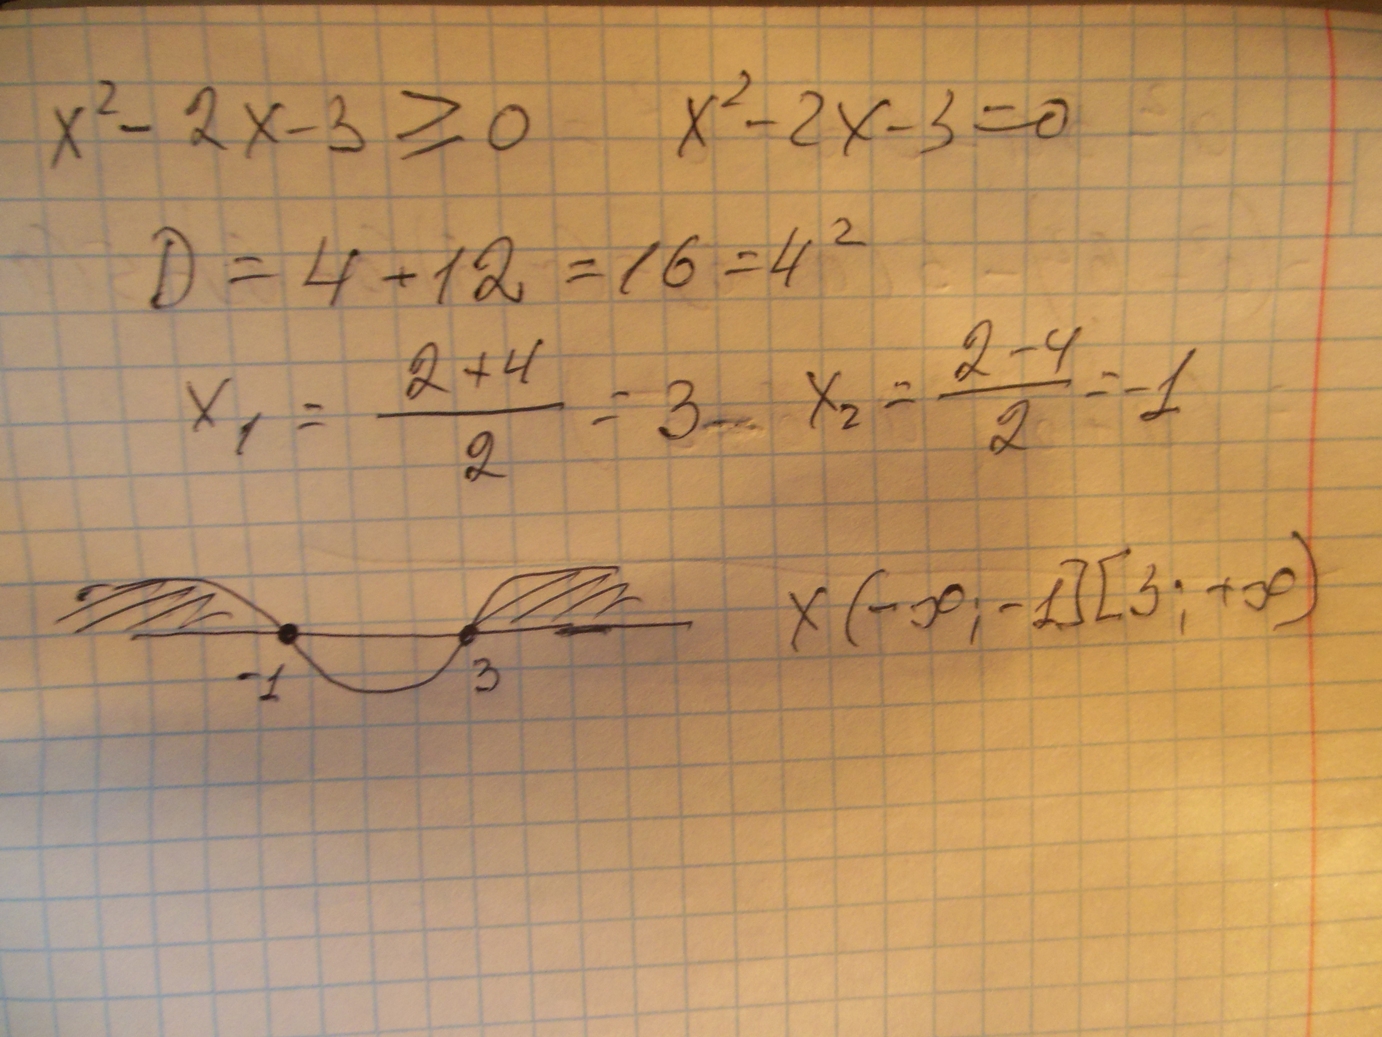 x² - 2x - 3 ≥ 0 x² - 2x - 3 = 0
D = 4 + 12 = 16 = 4²
x₁ = (2 + 4)/2 = 3 x₂ = (2 - 4)/2 = -1
-1 3 x (-∞; -1] [3; +∞)